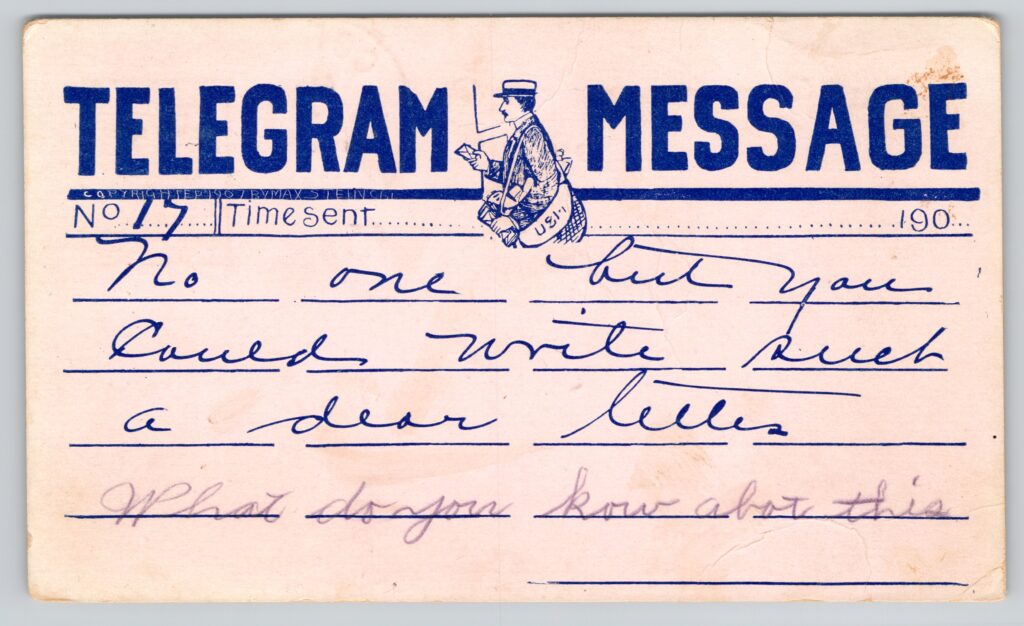 TELEGRAM MESSAGE
COPYRIGHTED 1907 BY MAX STEIN CO.
No 17 Time sent 190
No one but you
Could write such
a dear letter
What do you kow abot this